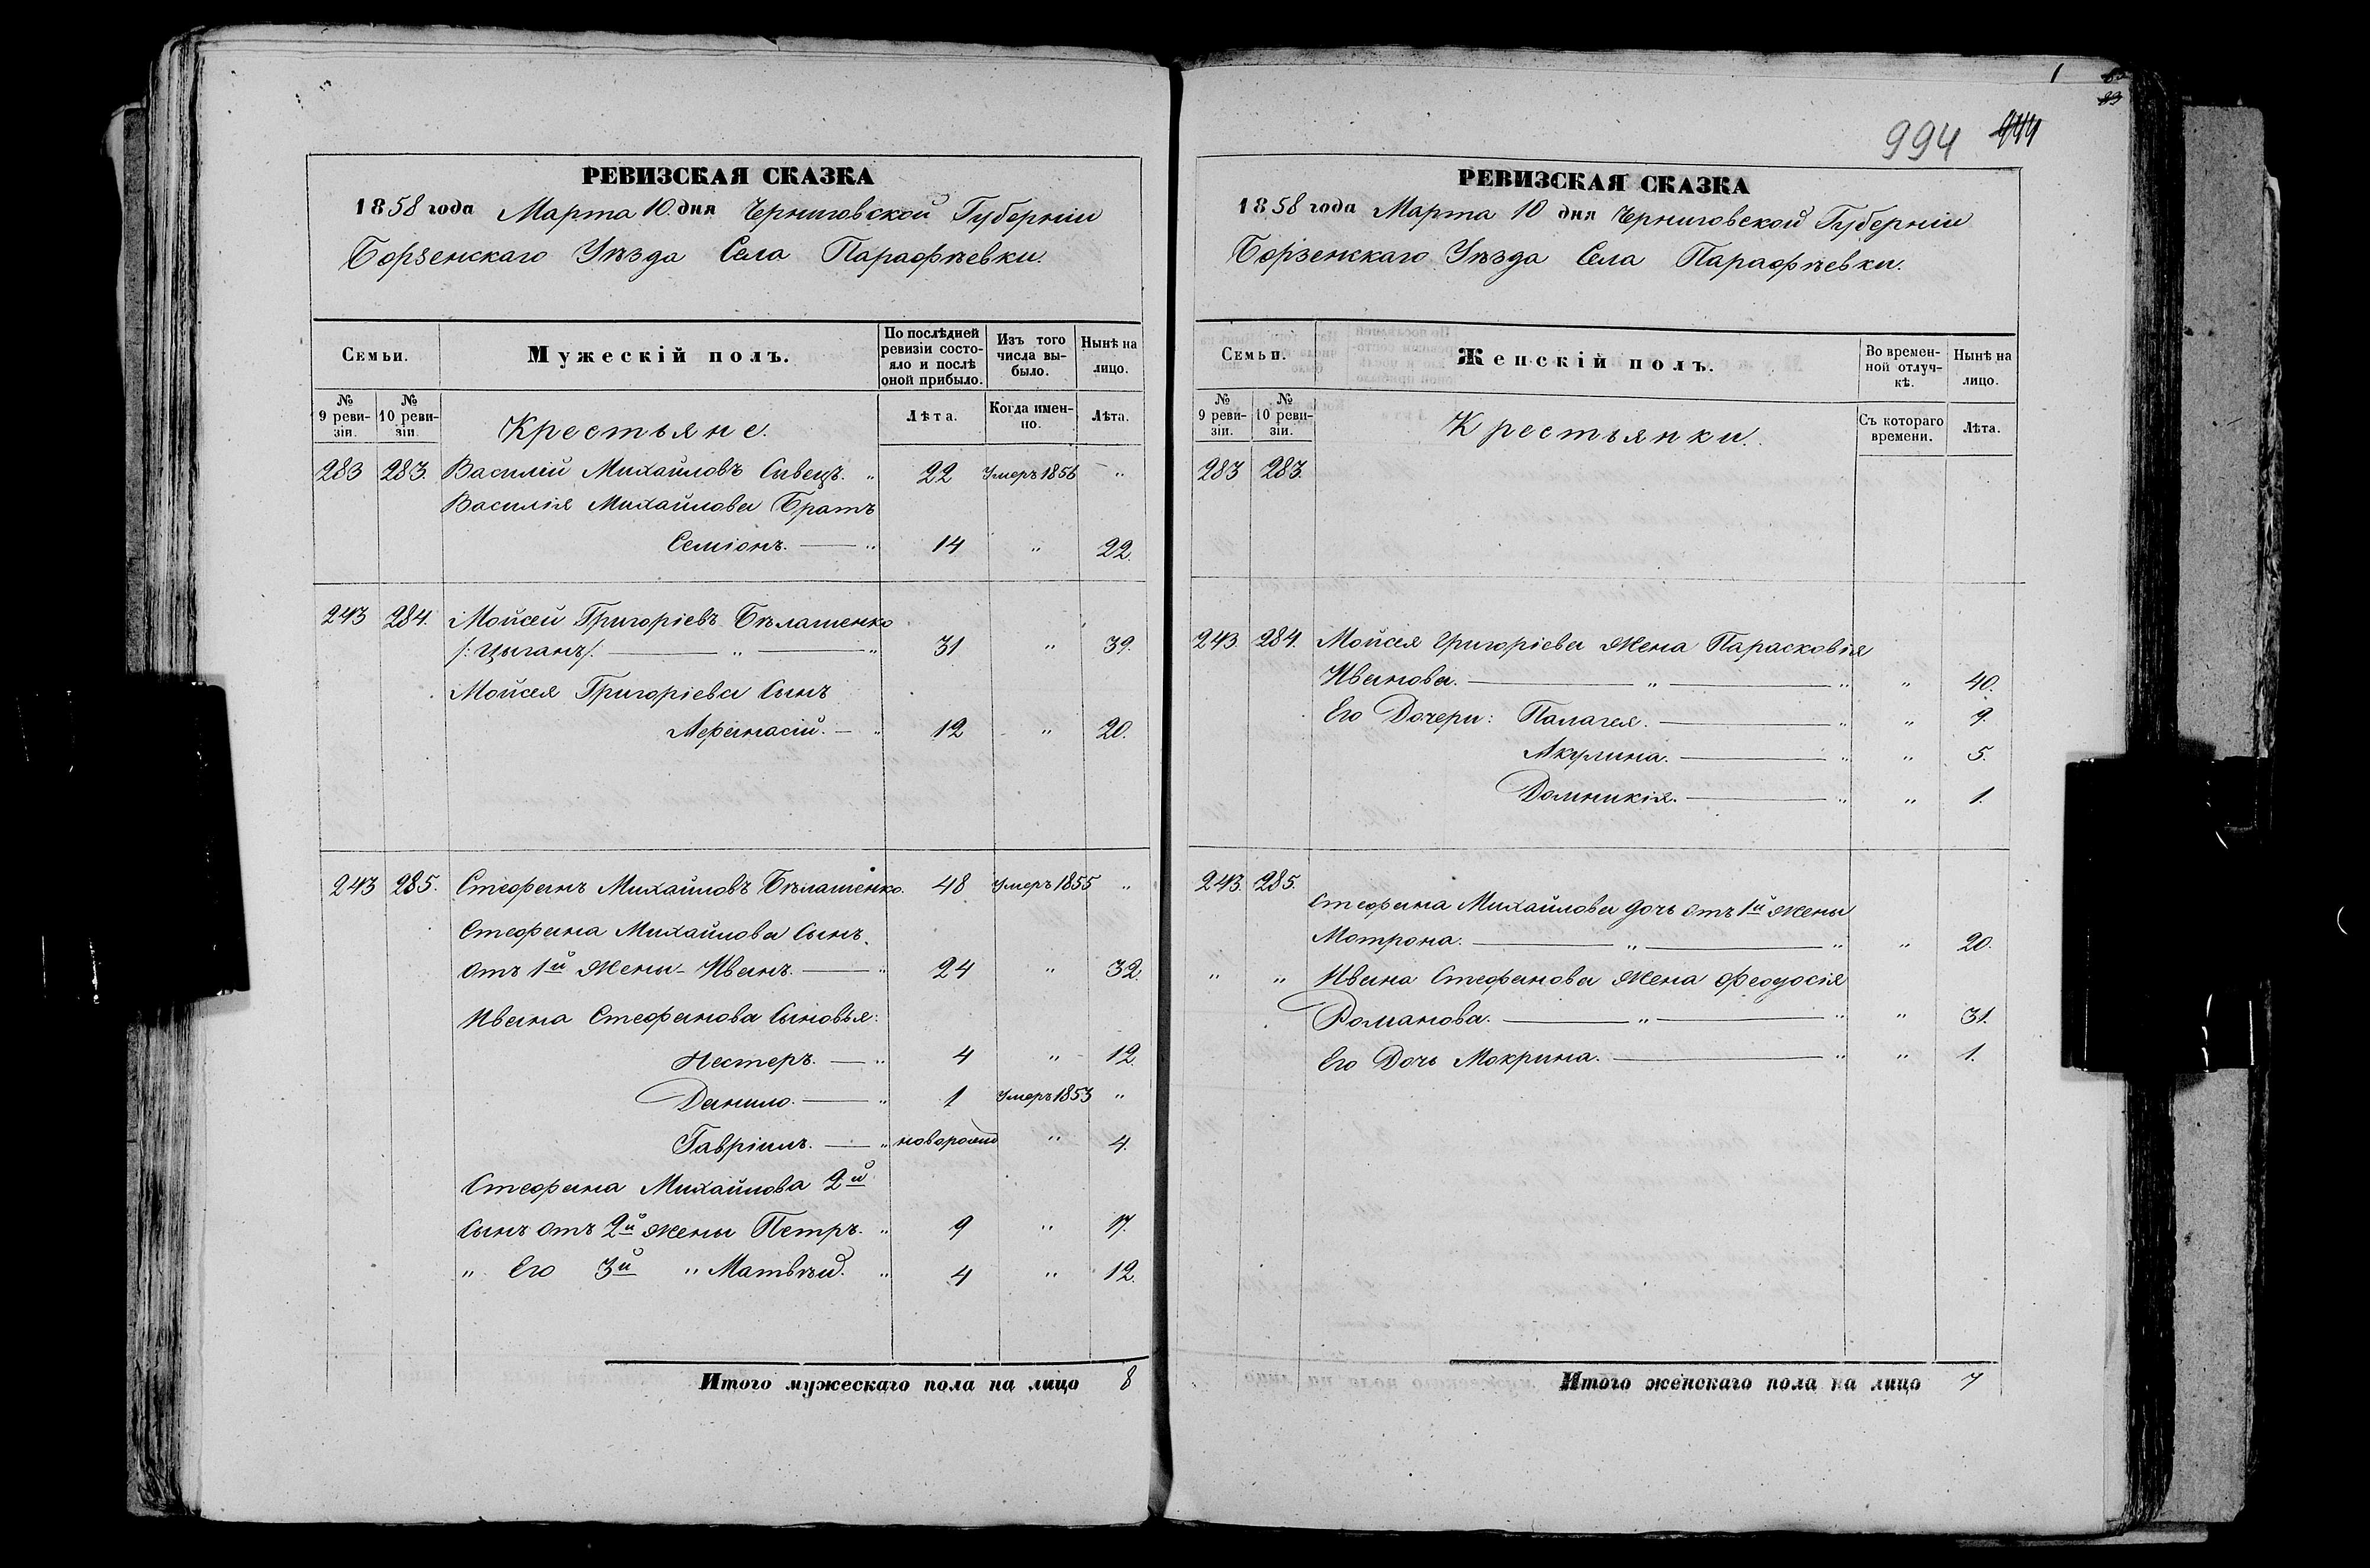 РЕВИЗСКАЯ СКАЗКА
1858 года Марта 10 дня Черниговской Губерніи
Борзенскаго Уѣзда Села Парафѣевки.
Семьи.
Мужескій полъ.
По послѣдней ревизіи состояло и послѣ оной прибыло.
Изъ того числа выбыло.
Нынѣ на лицо.
№ 9 ревизіи.
№ 10 ревизіи.
Крестьяне.
Лѣта.
Когда именно.
Лѣта.
283 283. Василій Михайловъ Сивецъ. " 22 Умеръ 1856 "
Василія Михайлова Братъ
Семіонъ. — " 14 " 22.
243 284. Мойсей Григоріевъ Бѣлашенко
/:Цыганъ/: — " — " 31 " 39.
Мойсея Григоріева Сынъ
Афанасій. — " 12 " 20.
243 285. Стефанъ Михайловъ Бѣлашенко. 48 Умеръ 1855 "
Стефана Михайлова Сынъ
отъ 1й Жены - Иванъ. — " 24 " 32.
Ивана Стефанова Сыновья:
Нестеръ. — " 4 " 12.
Данило. — " 1 Умеръ 1853 "
Гавріилъ. — " новорожд " 4.
Стефана Михайлова 2й
Сынъ отъ 2й жены Петръ. " 9 " 17.
" Его 3й " Матвѣй. " 4 " 12.
Итого мужескаго пола на лицо 8
1
83
994 444
РЕВИЗСКАЯ СКАЗКА
1858 года Марта 10 дня Черниговской Губерніи
Борзенскаго Уѣзда Села Парафѣевки.
Семьи.
Женскій полъ.
Во временной отлучкѣ.
Нынѣ на лицо.
№ 9 ревизіи.
№ 10 ревизіи.
Крестьянки.
Съ котораго времени.
Лѣта.
283 283.
243. 284. Мойсея Григоріева Жена Парасковія
Иванова. — " — " " 40.
Его Дочери: Палагея. — " " 9.
Акулина. — " " 5.
Домникія. — " " 1.
243. 285.
Стефана Михайлова дочь отъ 1й Жены
Мотрона. — " — " " 20.
" " Ивана Стефанова Жена Феодосія
Романова. — " — " " 31.
Его Дочь Мокрина. — " " 1.
Итого женскаго пола на лицо 7